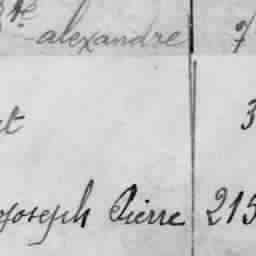 Ste alexandre 7
et 3
Joseph Pierre 215